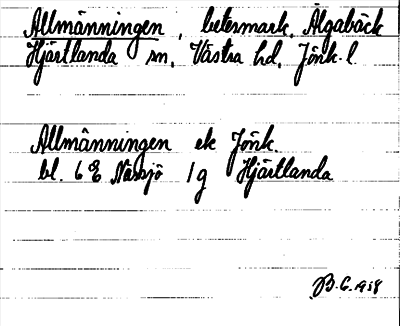 Allmänningen, betesmark, Älgabäck
Hjärtlanda sn, Västra hd, Jönk. l.
Allmänningen ek Jönk.
bl. 6 E Nässjö 1 g Hjärtlanda